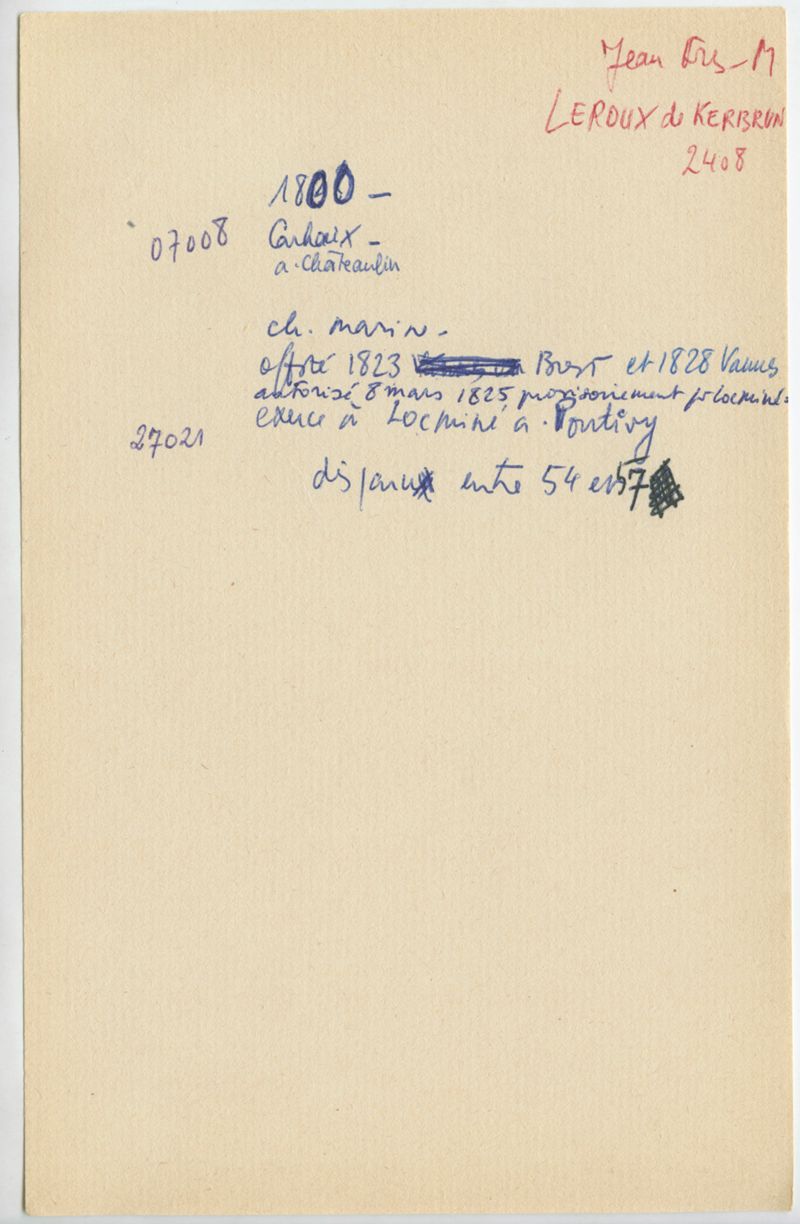 Jean Frs-M
LEROUX de KERBRUN
2408
1800 -
07008 Carhaix -
a. Châteaulin
ch. marin -
offsté 1823 Brest et 1828 Vannes
autorisé 8 mars 1825 provisoirement pr Locminé.
exerce à Locminé a. Pontivy
27021
disparu entre 54 et 57